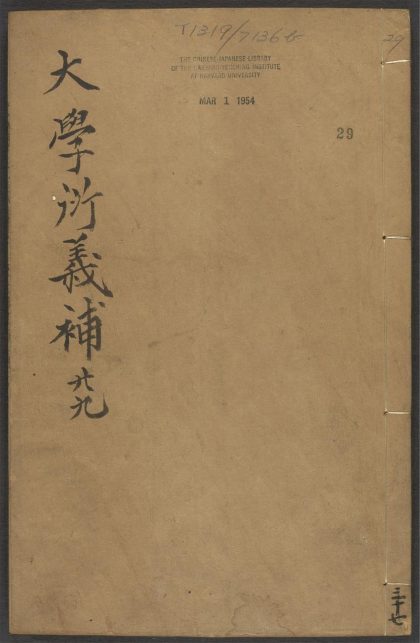 T1319/7136b
29
THE CHINESE-JAPANESE LIBRARY
OF THE HARVARD-YENCHING INSTITUTE
AT HARVARD UNIVERSITY
MAR 1 1954
29
大學衍義補 廿九
三十七